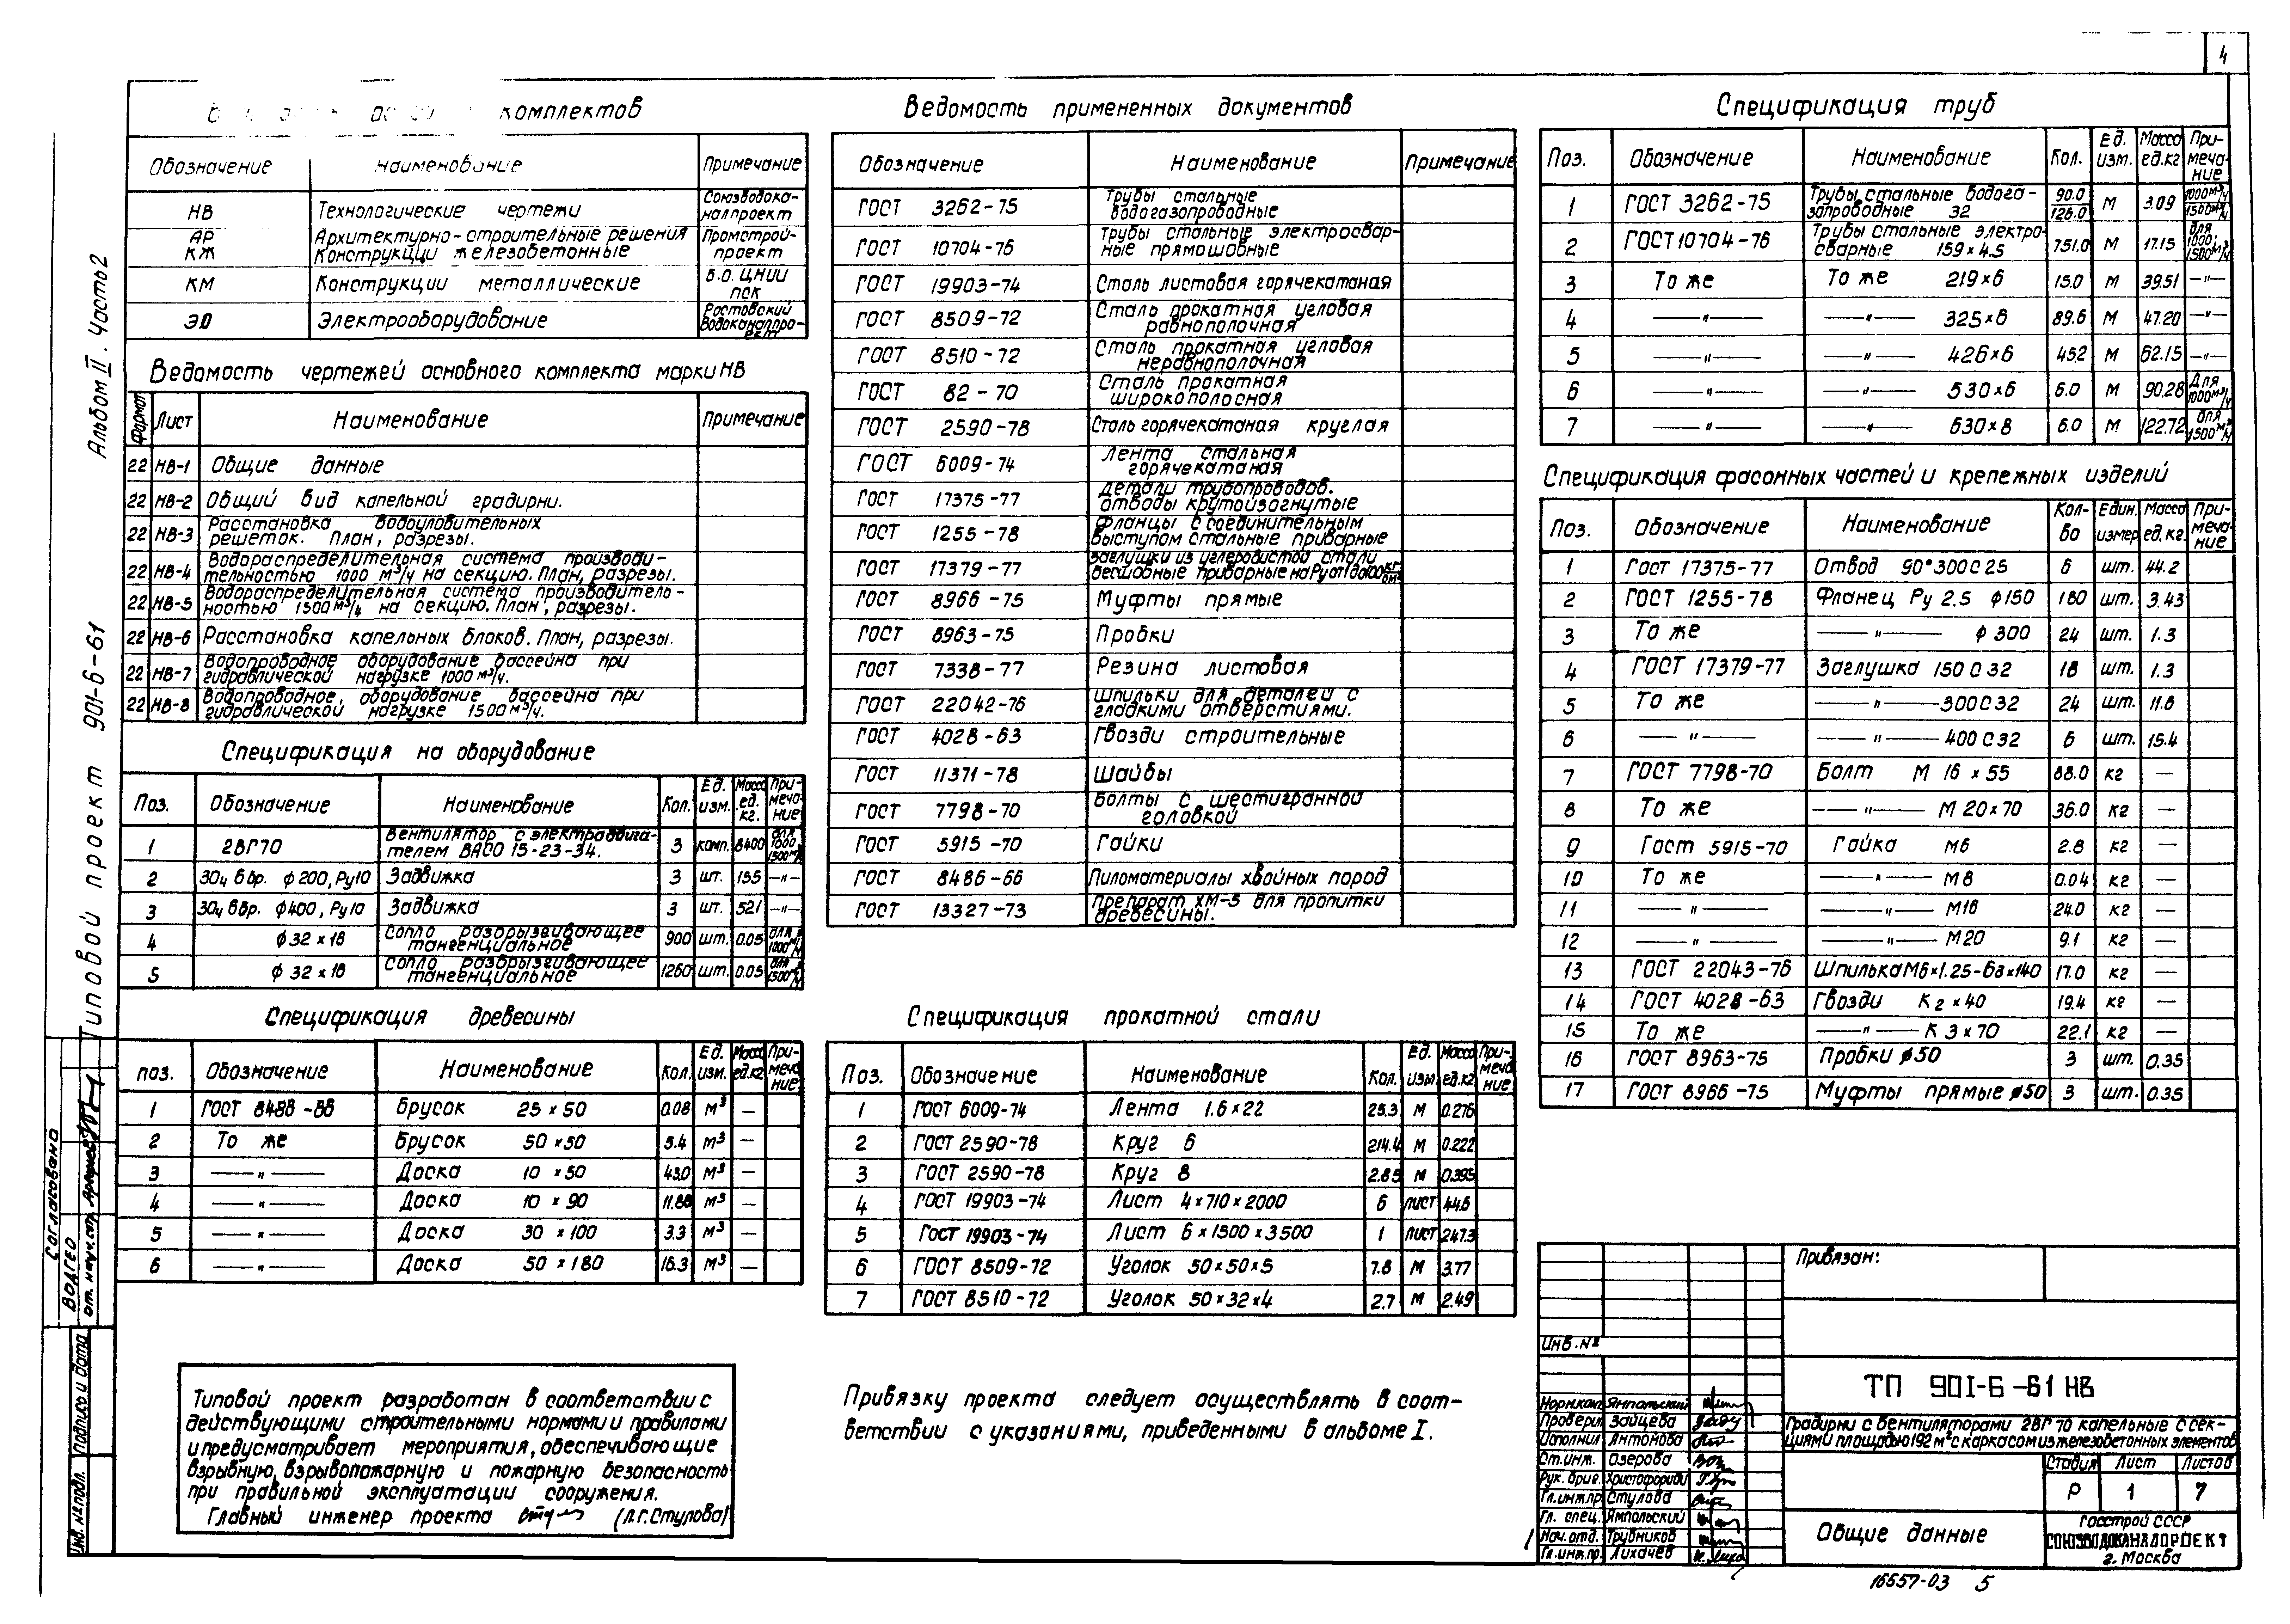 4
комплектов
Обозначение Наименование Примечание
НВ Технологические чертежи Союзводока-налпроект
АР Архитектурно-строительные решения Промстрой-
КЖ Конструкции железобетонные проект
КМ Конструкции металлические В.О. ЦНИИ ПСК
ЭО Электрооборудование Ростовский Водоканалпро-ект
Ведомость чертежей основного комплекта марки НВ
Формат Лист Наименование Примечание
22 НВ-1 Общие данные
22 НВ-2 Общий вид капельной градирни.
22 НВ-3 Расстановка водоуловительных
решеток. План, разрезы.
22 НВ-4 Водораспределительная система производи-
тельностью 1000 м³/ч на секцию. План, разрезы.
22 НВ-5 Водораспределительная система производитель-
ностью 1500 м³/ч на секцию. План, разрезы.
22 НВ-6 Расстановка капельных блоков. План, разрезы.
22 НВ-7 Водопроводное оборудование бассейна при
гидравлической нагрузке 1000 м³/ч.
22 НВ-8 Водопроводное оборудование бассейна при
гидравлической нагрузке 1500 м³/ч.
Спецификация на оборудование
Поз. Обозначение Наименование Кол. Ед. изм. Масса ед. кг. Приме-чание
1 2ВГ70 Вентилятор с электродвига-
телем ВАСО 15-23-34. 3 комп. 8400 для 1000, 1500 м³/ч
2 30ч 6бр. ϕ200, Ру10 Задвижка 3 шт. 195 —"—
3 30ч 6бр. ϕ400, Ру10 Задвижка 3 шт. 521 —"—
4 ϕ 32 × 16 Сопло разбрызгивающее
тангенциальное 900 шт. 0.05 для 1000 м³/ч
5 ϕ 32 × 16 Сопло разбрызгивающее
тангенциальное 1260 шт. 0.05 для 1500 м³/ч
Спецификация древесины
поз. Обозначение Наименование Кол. Ед. изм. Масса ед.кг При-меча-ние
1 ГОСТ 8486-66 Брусок 25 × 50 0.08 м³ —
2 То же Брусок 50 × 50 5.4 м³ —
3 —"— Доска 10 × 50 43.0 м³ —
4 —"— Доска 10 × 90 11.88 м³ —
5 —"— Доска 30 × 100 3.3 м³ —
6 —"— Доска 50 × 180 16.3 м³ —
Типовой проект разработан в соответствии с
действующими строительными нормами и правилами
и предусматривает мероприятия, обеспечивающие
взрывную, взрывопожарную и пожарную безопасность
при правильной эксплуатации сооружения.
Главный инженер проекта (Л.Г. Стулова)
Ведомость примененных документов
Обозначение Наименование Примечание
ГОСТ 3262-75 Трубы стальные
водогазопроводные
ГОСТ 10704-76 Трубы стальные электросвар-
ные прямошовные
ГОСТ 19903-74 Сталь листовая горячекатаная
ГОСТ 8509-72 Сталь прокатная угловая
равнополочная
ГОСТ 8510-72 Сталь прокатная угловая
неравнополочная
ГОСТ 82-70 Сталь прокатная
широкополосная
ГОСТ 2590-78 Сталь горячекатаная круглая
ГОСТ 6009-74 Лента стальная
горячекатаная
ГОСТ 17375-77 Детали трубопроводов.
отводы крутоизогнутые
ГОСТ 1255-78 Фланцы с соединительным
выступом стальные приварные
ГОСТ 17379-77 Заглушки из углеродистой стали
бесшовные приварные на Ру от 1 до 100 кг/см²
ГОСТ 8966-75 Муфты прямые
ГОСТ 8963-75 Пробки
ГОСТ 7338-77 Резина листовая
ГОСТ 22042-76 Шпильки для деталей с
гладкими отверстиями.
ГОСТ 4028-63 Гвозди строительные
ГОСТ 11371-78 Шайбы
ГОСТ 7798-70 Болты с шестигранной
головкой
ГОСТ 5915-70 Гайки
ГОСТ 8486-66 Пиломатериалы хвойных пород
ГОСТ 13327-73 Препарат ХМ-5 для пропитки
древесины.
Спецификация прокатной стали
Поз. Обозначение Наименование Кол. Ед. изм. Масса ед.кг При-меча-ние
1 ГОСТ 6009-74 Лента 1.6×22 25.3 м 0.276
2 ГОСТ 2590-78 Круг 6 214.4 м 0.222
3 ГОСТ 2590-78 Круг 8 2.85 м 0.395
4 ГОСТ 19903-74 Лист 4×710×2000 6 лист 44.6
5 ГОСТ 19903-74 Лист 6×1500×3500 1 лист 247.3
6 ГОСТ 8509-72 Уголок 50×50×5 7.8 м 3.77
7 ГОСТ 8510-72 Уголок 50×32×4 2.7 м 2.49
Привязку проекта следует осуществлять в соот-
ветствии с указаниями, приведенными в альбоме I.
Спецификация труб
Поз. Обозначение Наименование Кол. Ед. изм. Масса ед.кг При-меча-ние
1 ГОСТ 3262-75 Трубы стальные водога-
запроводные 32 90.0 / 126.0 м 3.09 1000 м³/ч 1500 м³/ч
2 ГОСТ 10704-76 Трубы стальные электро-
сварные 159×4.5 751.0 м 17.15 для 1000, 1500 м³/ч
3 То же То же 219×6 15.0 м 39.51 —"—
4 —"— —"— 325×6 89.6 м 47.20 —"—
5 —"— —"— 426×6 45.2 м 62.15 —"—
6 —"— —"— 530×6 6.0 м 90.28 Для 1000 м³/ч
7 —"— —"— 630×8 6.0 м 122.72 для 1500 м³/ч
Спецификация фасонных частей и крепежных изделий
Поз. Обозначение Наименование Кол-во Един. измер Масса ед.кг. При-меча-ние
1 Гост 17375-77 Отвод 90°300С25 6 шт. 44.2
2 ГОСТ 1255-78 Фланец Ру 2.5 ϕ150 180 шт. 3.43
3 То же —"— ϕ 300 24 шт. 1.3
4 ГОСТ 17379-77 Заглушка 150 С 32 18 шт. 1.3
5 То же —"— 300С32 24 шт. 11.6
6 —"— —"— 400С32 6 шт. 15.4
7 ГОСТ 7798-70 Болт М 16 × 55 88.0 кг —
8 То же —"— М 20×70 36.0 кг —
9 Гост 5915-70 Гайка М6 2.8 кг —
10 То же —"— М8 0.04 кг —
11 —"— —"— М16 24.0 кг —
12 —"— —"— М20 9.1 кг —
13 ГОСТ 22043-76 Шпилька М6×1.25-6д×140 17.0 кг —
14 ГОСТ 4028-63 Гвозди К 2×40 19.4 кг —
15 То же —"— К 3×70 22.1 кг —
16 ГОСТ 8963-75 Пробки ϕ50 3 шт. 0.35
17 ГОСТ 8966-75 Муфты прямые ϕ50 3 шт. 0.35
Привязан:
Инв. №
ТП 901-6-61 НВ
Градирни с вентиляторами 2ВГ 70 капельные с сек-
циями площадью 192 м² с каркасом из железобетонных элементов
Норм.кон. Ямпольский
Проверил Зайцева
Исполнил Антонова
Ст.инж. Озерова
Рук. бриг. Христофориди
Гл.инж.пр Стулова
Гл. спец. Ямпольский
Нач.отд. Трубников
Гл.инж.пр. Лихачев
Стадия Лист Листов
Р 1 7
Общие данные
Госстрой СССР
СОЮЗВОДОКАНАЛПРОЕКТ
г. Москва
16557-03 5
Типовой проект 901-6-61 Альбом II. Часть 2
Согласовано
ВОДГЕО
Инв. № подл. Подпись и дата